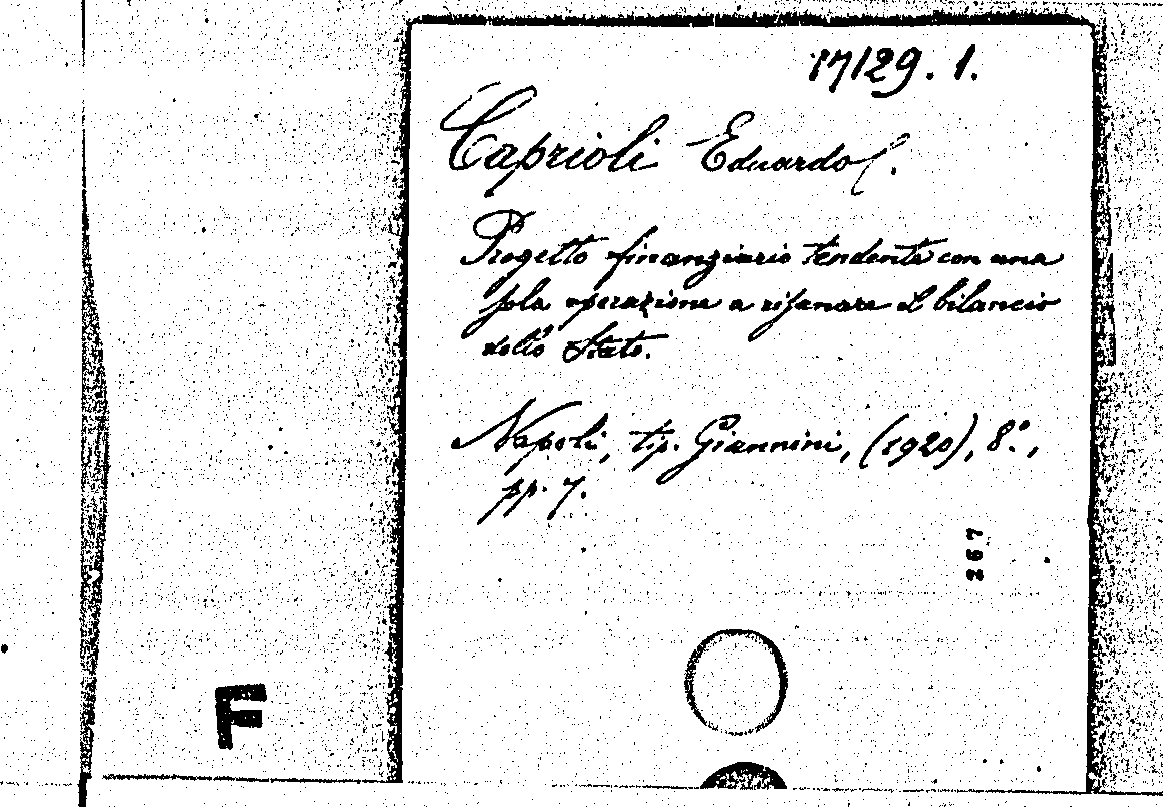 17129. 1.
Caprioli Eduardo C.
Progetto finanziario tendente con una
sola operazione a risanare il bilancio
dello Stato.
Napoli, tip. Giannini, (1920), 8°.,
pp. 7.
267
F